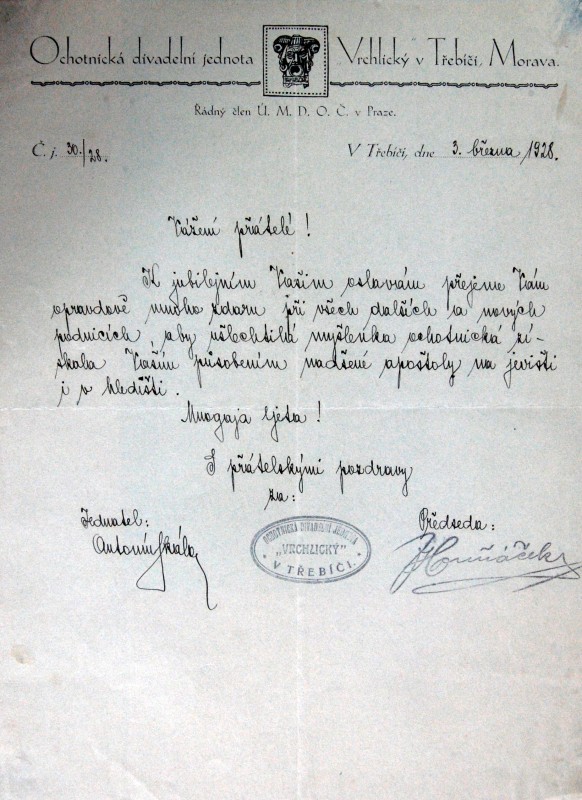 Ochotnická divadelní jednota Vrchlický v Třebíči, Morava.
Řádný člen Ú. M. D. O. Č. v Praze.
Č. j. 30./28. V Třebíči, dne 3. března 1928.
Vážení přátelé!
K jubilejním Vašim oslavám přejeme Vám
opravdově mnoho zdaru při všech dalších a nových
podnicích, aby ušlechtilá myšlenka ochotnická zí-
skala Vaším působením nadšené apoštoly na jevišti
i v hledišti.
Mnogaja ljeta!
S přátelskými pozdravy
za:
Jednatel: Předseda:
Antonín Skála
OCHOTNICKÁ DIVADELNÍ JEDNOTA
„VRCHLICKÝ”
V TŘEBÍČI.